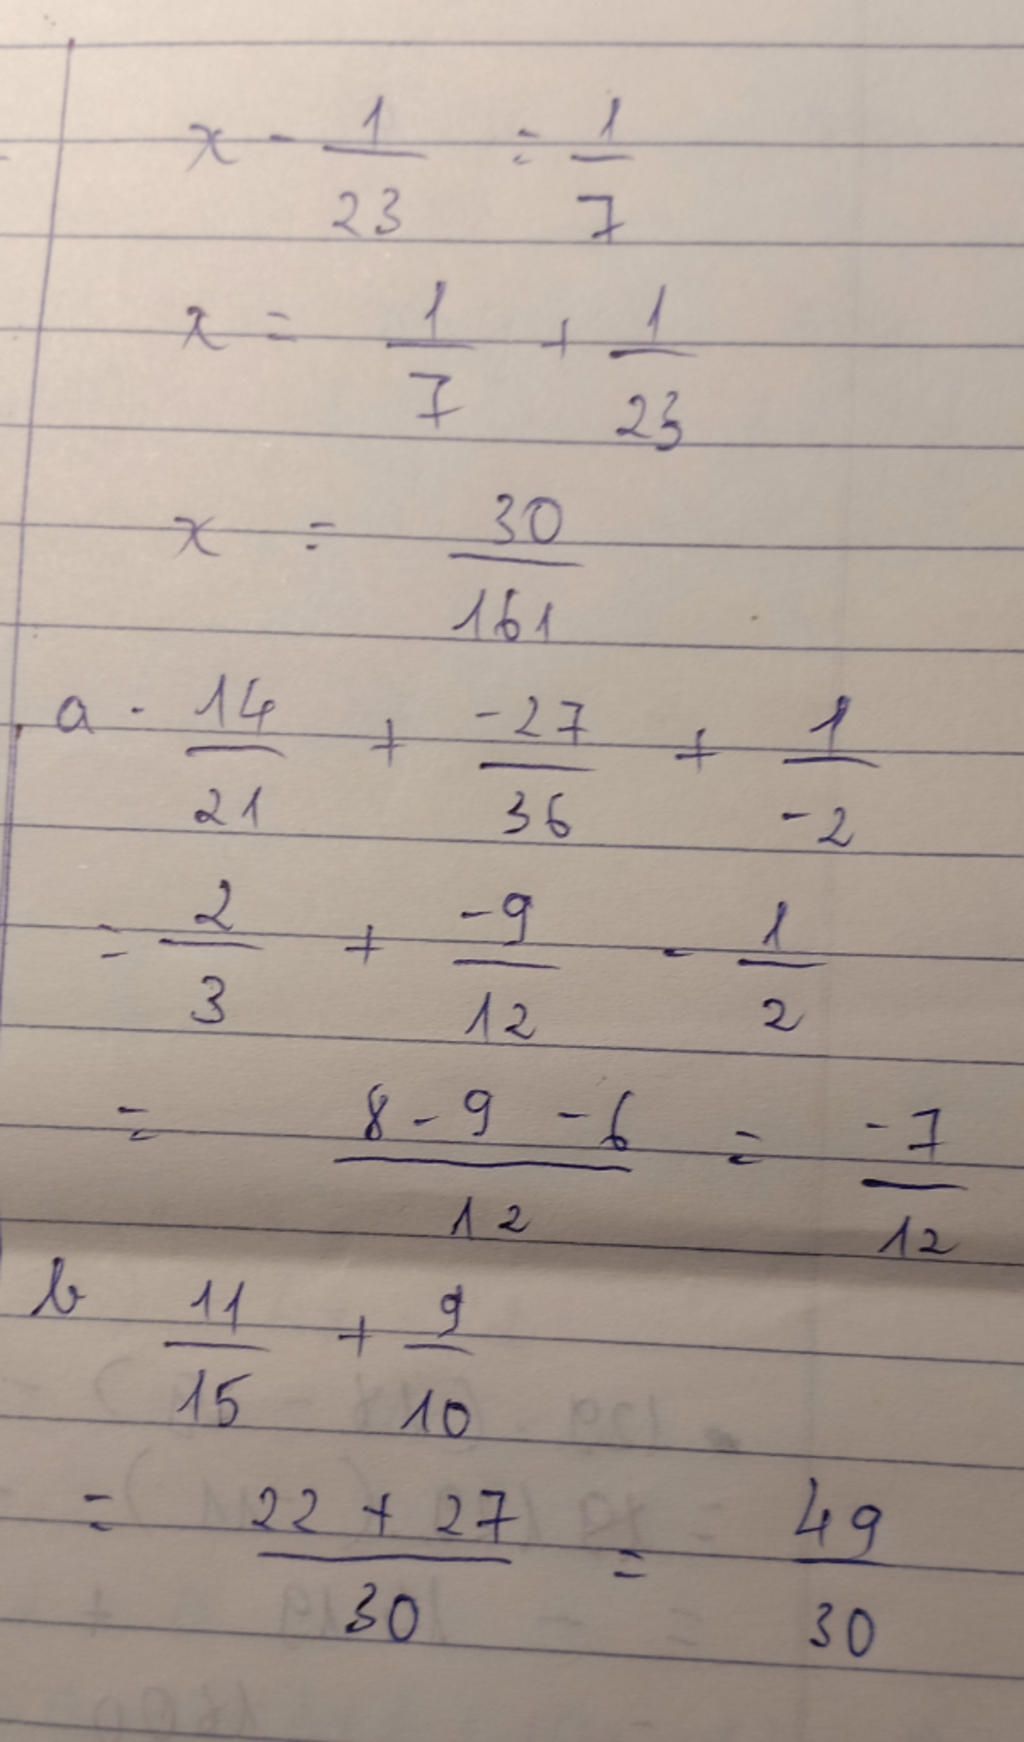 x - 1/23 = 1/7
x = 1/7 + 1/23
x = 30/161
a - 14/21 + -27/36 + 1/-2
= 2/3 + -9/12 - 1/2
= 8 - 9 - 6/12 = -7/12
b 11/15 + 9/10
= 22 + 27/30 = 49/30